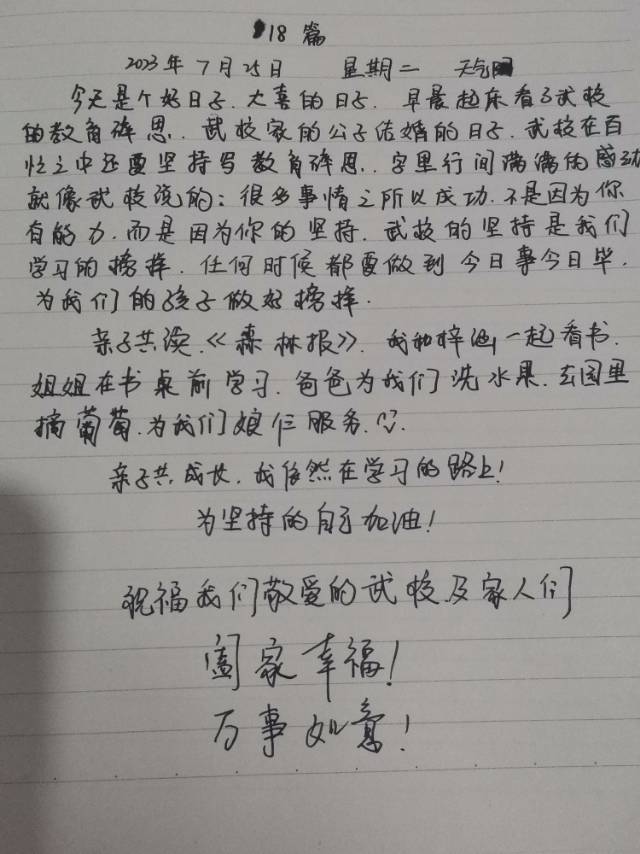 18 篇
2023年7月25日 星期二 天气阴
今天是个好日子.大喜的日子.早晨起床看了武校
的教育碎思.武校家的公子结婚的日子.武校在百
忙之中还要坚持写教育碎思..字里行间满满的感动
就像武校说的:很多事情之所以成功.不是因为你
有能力.而是因为你的坚持.武校的坚持是我们
学习的榜样.任何时候都要做到今日事今日毕.
为我们的孩子做好榜样.
亲子共读.《森林报》.我和梓涵一起看书.
姐姐在书桌前学习.爸爸为我们洗水果.去园里
摘葡萄.为我们娘仨服务.
亲子共成长.我依然在学习的路上!
为坚持的自己加油!
祝福我们敬爱的武校及家人们
阖家幸福!
万事如意!